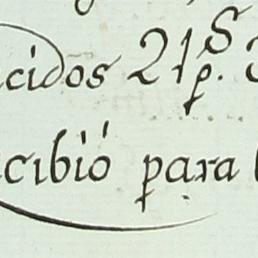 cidos 21p.S
cibió para